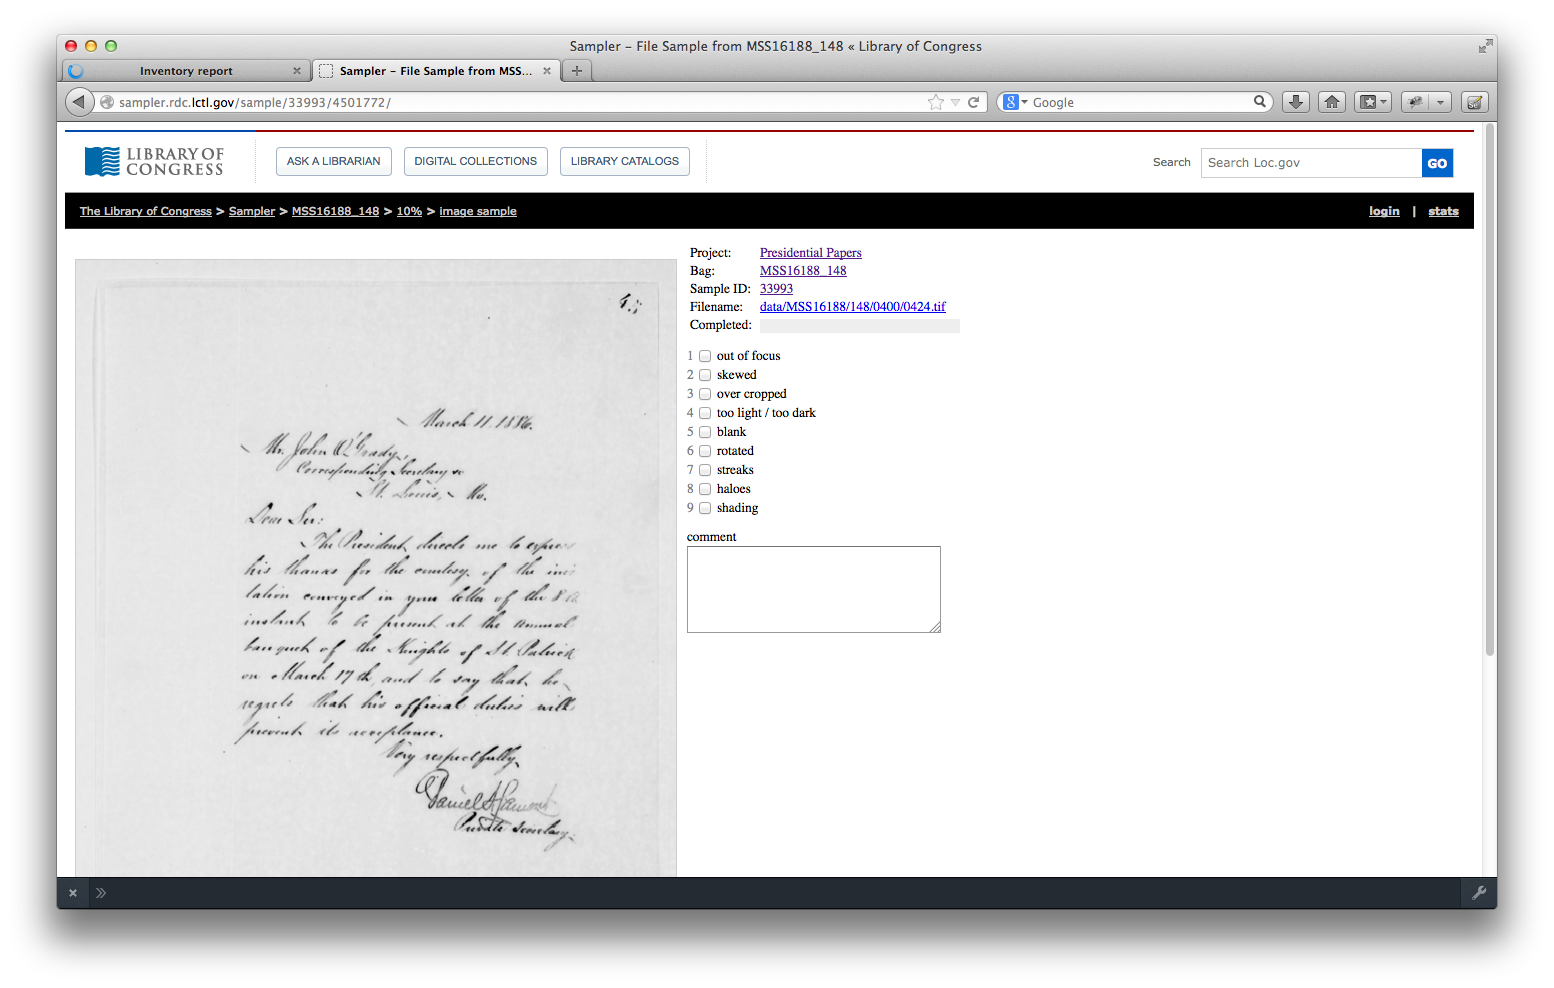 Sampler – File Sample from MSS16188_148 « Library of Congress
Inventory report
Sampler – File Sample from MSS...
sampler.rdc.lctl.gov/sample/33993/4501772/
Google
LIBRARY OF CONGRESS
ASK A LIBRARIAN
DIGITAL COLLECTIONS
LIBRARY CATALOGS
Search
Search Loc.gov
GO
The Library of Congress > Sampler > MSS16188_148 > 10% > image sample
login | stats
March 11. 1886.
Mr. John O'Grady,
Corresponding Secretary &c
St. Louis, Mo.
Dear Sir:
The President directs me to express
his thanks for the courtesy of the invi
tation conveyed in your letter of the 8th
instant to be present at the annual
banquet of the Knights of St. Patrick
on March 17th, and to say that he
regrets that his official duties will
prevent its acceptance.
Very respectfully,
Daniel S. Lamont
Private Secretary.
Project: Presidential Papers
Bag: MSS16188_148
Sample ID: 33993
Filename: data/MSS16188/148/0400/0424.tif
Completed:
1 out of focus
2 skewed
3 over cropped
4 too light / too dark
5 blank
6 rotated
7 streaks
8 haloes
9 shading
comment